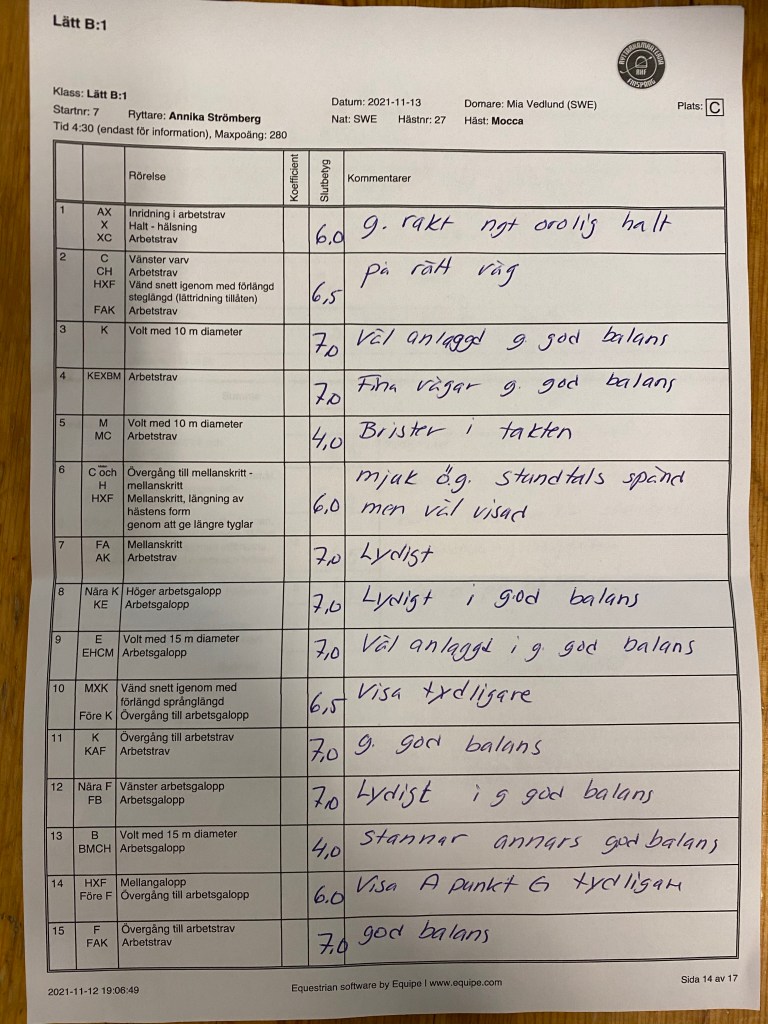 Lätt B:1
RYTTARKAMRATERNA
RHF
FINSPÅNG
Klass: Lätt B:1
Startnr: 7 Ryttare: Annika Strömberg
Tid 4:30 (endast för information), Maxpoäng: 280
Datum: 2021-11-13 Domare: Mia Vedlund (SWE) Plats: C
Nat: SWE Hästnr: 27 Häst: Mocca
Rörelse Koefficient Slutbetyg Kommentarer
1 AX Inridning i arbetstrav
X Halt - hälsning
XC Arbetstrav
6.0 g. rakt ngt orolig halt
2 C Vänster varv
CH Arbetstrav
HXF Vänd snett igenom med förlängd
steglängd (lättridning tillåten)
FAK Arbetstrav
6,5 på rätt väg
3 K Volt med 10 m diameter
7,0 Väl anlaggd g. god balans
4 KEXBM Arbetstrav
7,0 Fina vägar g. god balans
5 M Volt med 10 m diameter
MC Arbetstrav
4,0 Brister i takten
6 C och Övergång till mellanskritt -
H mellanskritt
HXF Mellanskritt, längning av
hästens form
genom att ge längre tyglar
6,0 mjuk ö.g. stundtals spänd
men väl visad
7 FA Mellanskritt
AK Arbetstrav
7,0 Lydigt
8 Nära K Höger arbetsgalopp
KE Arbetsgalopp
7,0 Lydigt i god balans
9 E Volt med 15 m diameter
EHCM Arbetsgalopp
7,0 Väl anlaggd i g. god balans
10 MXK Vänd snett igenom med
förlängd språnglängd
Före K Övergång till arbetsgalopp
6,5 Visa tydligare
11 K Övergång till arbetstrav
KAF Arbetstrav
7,0 g. god balans
12 Nära F Vänster arbetsgalopp
FB Arbetsgalopp
7,0 Lydigt i g god balans
13 B Volt med 15 m diameter
BMCH Arbetsgalopp
4,0 Stannar annars god balans
14 HXF Mellangalopp
Före F Övergång till arbetsgalopp
6.0 Visa A punkt G tydligare
15 F Övergång till arbetstrav
FAK Arbetstrav
7,0 god balans
2021-11-12 19:06:49 Equestrian software by Equipe I www.equipe.com Sida 14 av 17